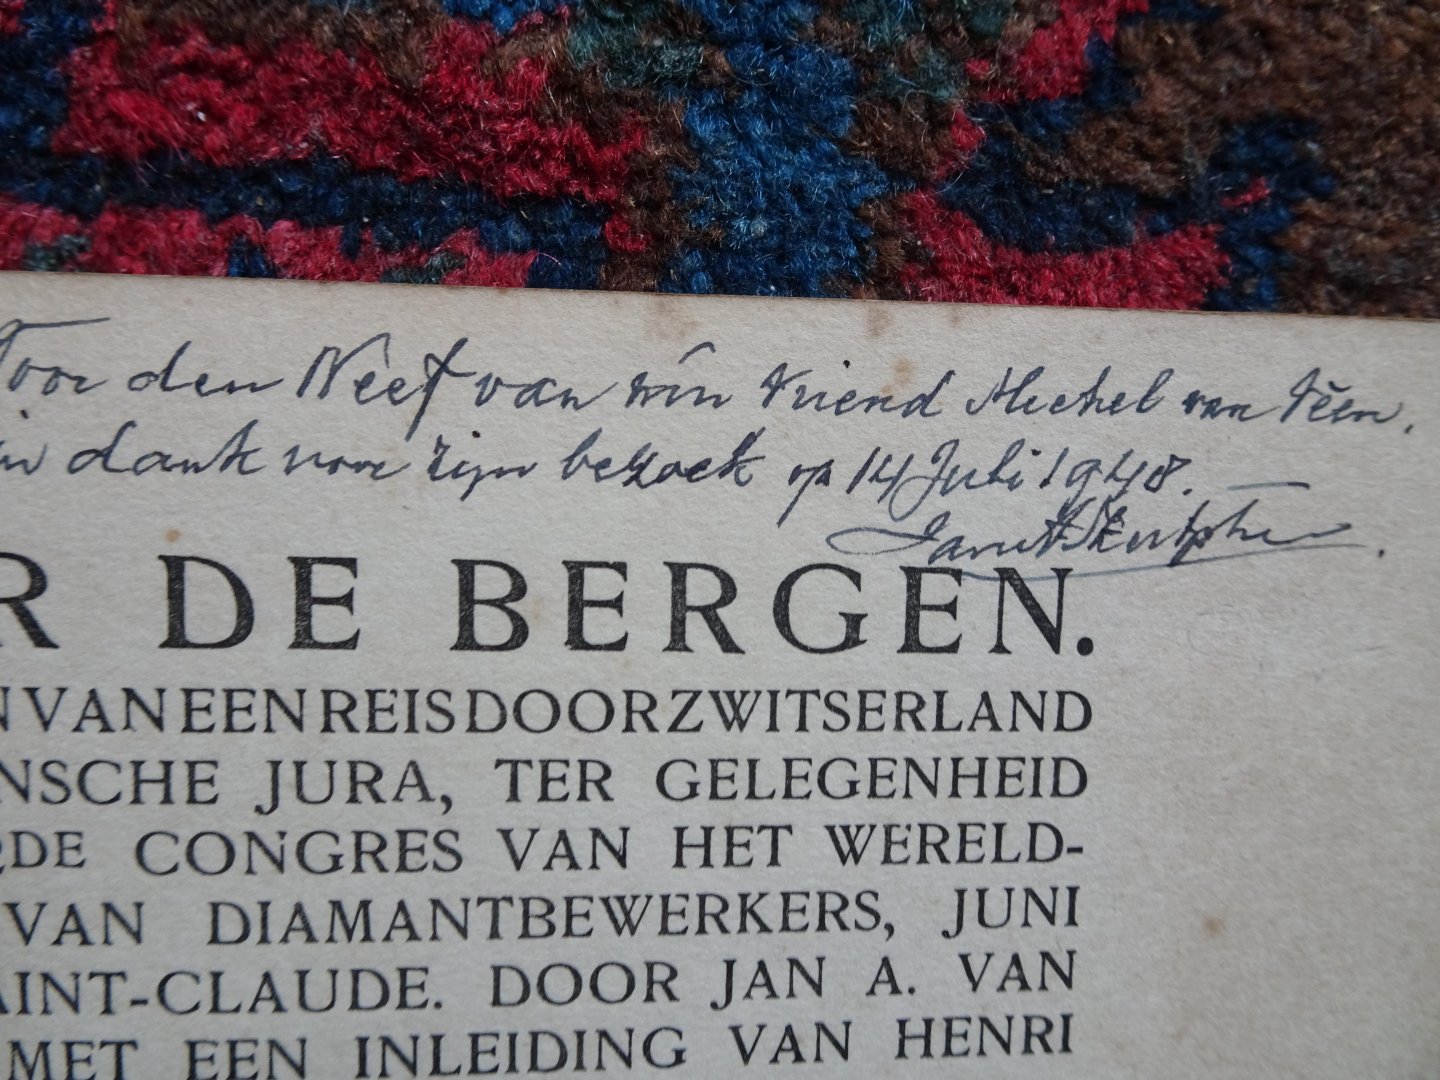 Voor den Neef van mijn vriend Michel van Veen.
in dank voor zijn bezoek op 14 Juli 1948.
R DE BERGEN.
N VAN EEN REIS DOOR ZWITSERLAND
NSCHE JURA, TER GELEGENHEID
RDE CONGRES VAN HET WERELD-
VAN DIAMANTBEWERKERS, JUNI
AINT-CLAUDE. DOOR JAN A. VAN
MET EEN INLEIDING VAN HENRI